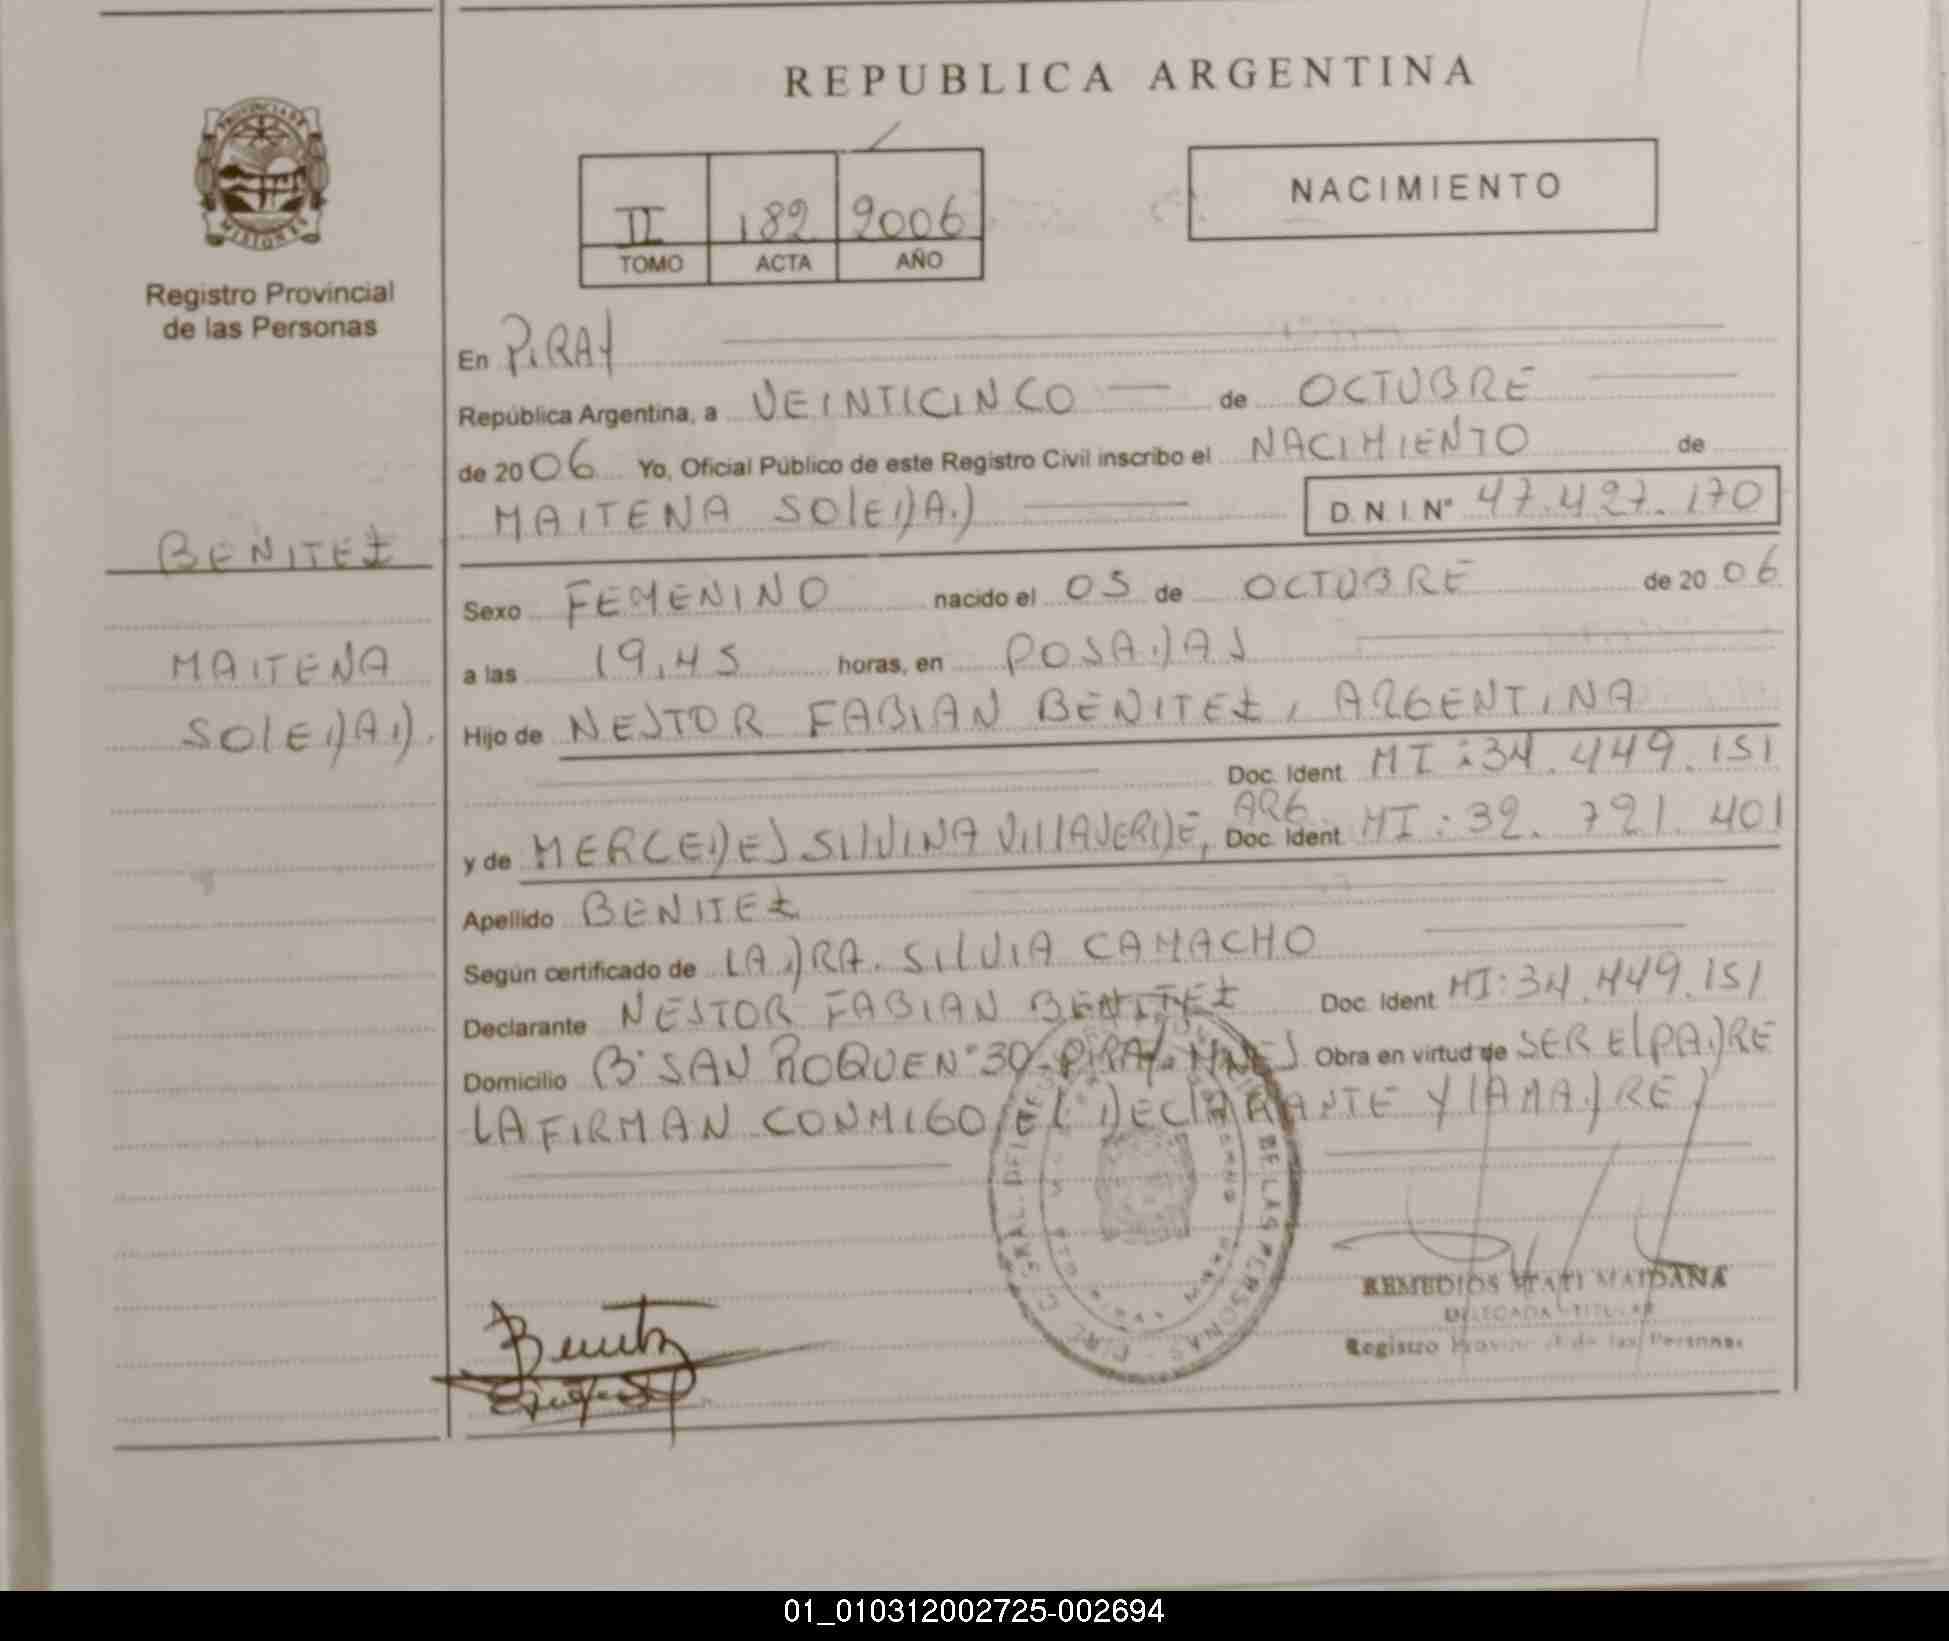 REPUBLICA ARGENTINA
PROVINCIA DE
MISIONES
Registro Provincial
de las Personas
II 182 2006
TOMO ACTA AÑO
NACIMIENTO
En PIRAY
República Argentina, a VEINTICINCO de OCTUBRE
de 2006 Yo, Oficial Público de este Registro Civil inscribo el NACIMIENTO de
MAITENA SOLEDAD D.N.I. Nº 47.427.170
BENITEZ
MAITENA
SOLEDAD.
Sexo FEMENINO nacido el 05 de OCTUBRE de 2006
a las 19,45 horas, en POSADAS
Hijo de NESTOR FABIAN BENITEZ, ARGENTINA
Doc. Ident. MI: 34.449.151
y de MERCEDES SILVINA VILLAVERDE, ARG Doc. Ident. MI: 32.721.401
Apellido BENITEZ
Según certificado de LA DRA. SILVIA CAMACHO
Declarante NESTOR FABIAN BENITEZ Doc. Ident MI: 34.449.151
Domicilio Bº SAN ROQUE Nº 30-PIRAY-MNES Obra en virtud de SER EL PADRE
LA FIRMAN CONMIGO EL DECLARANTE Y LA MADRE
DE LAS PERSONAS
Benitez
REMEDIOS ITATI MAIDANA
DELEGADA TITULAR
Registro Provincial de las Personas
01_010312002725-002694